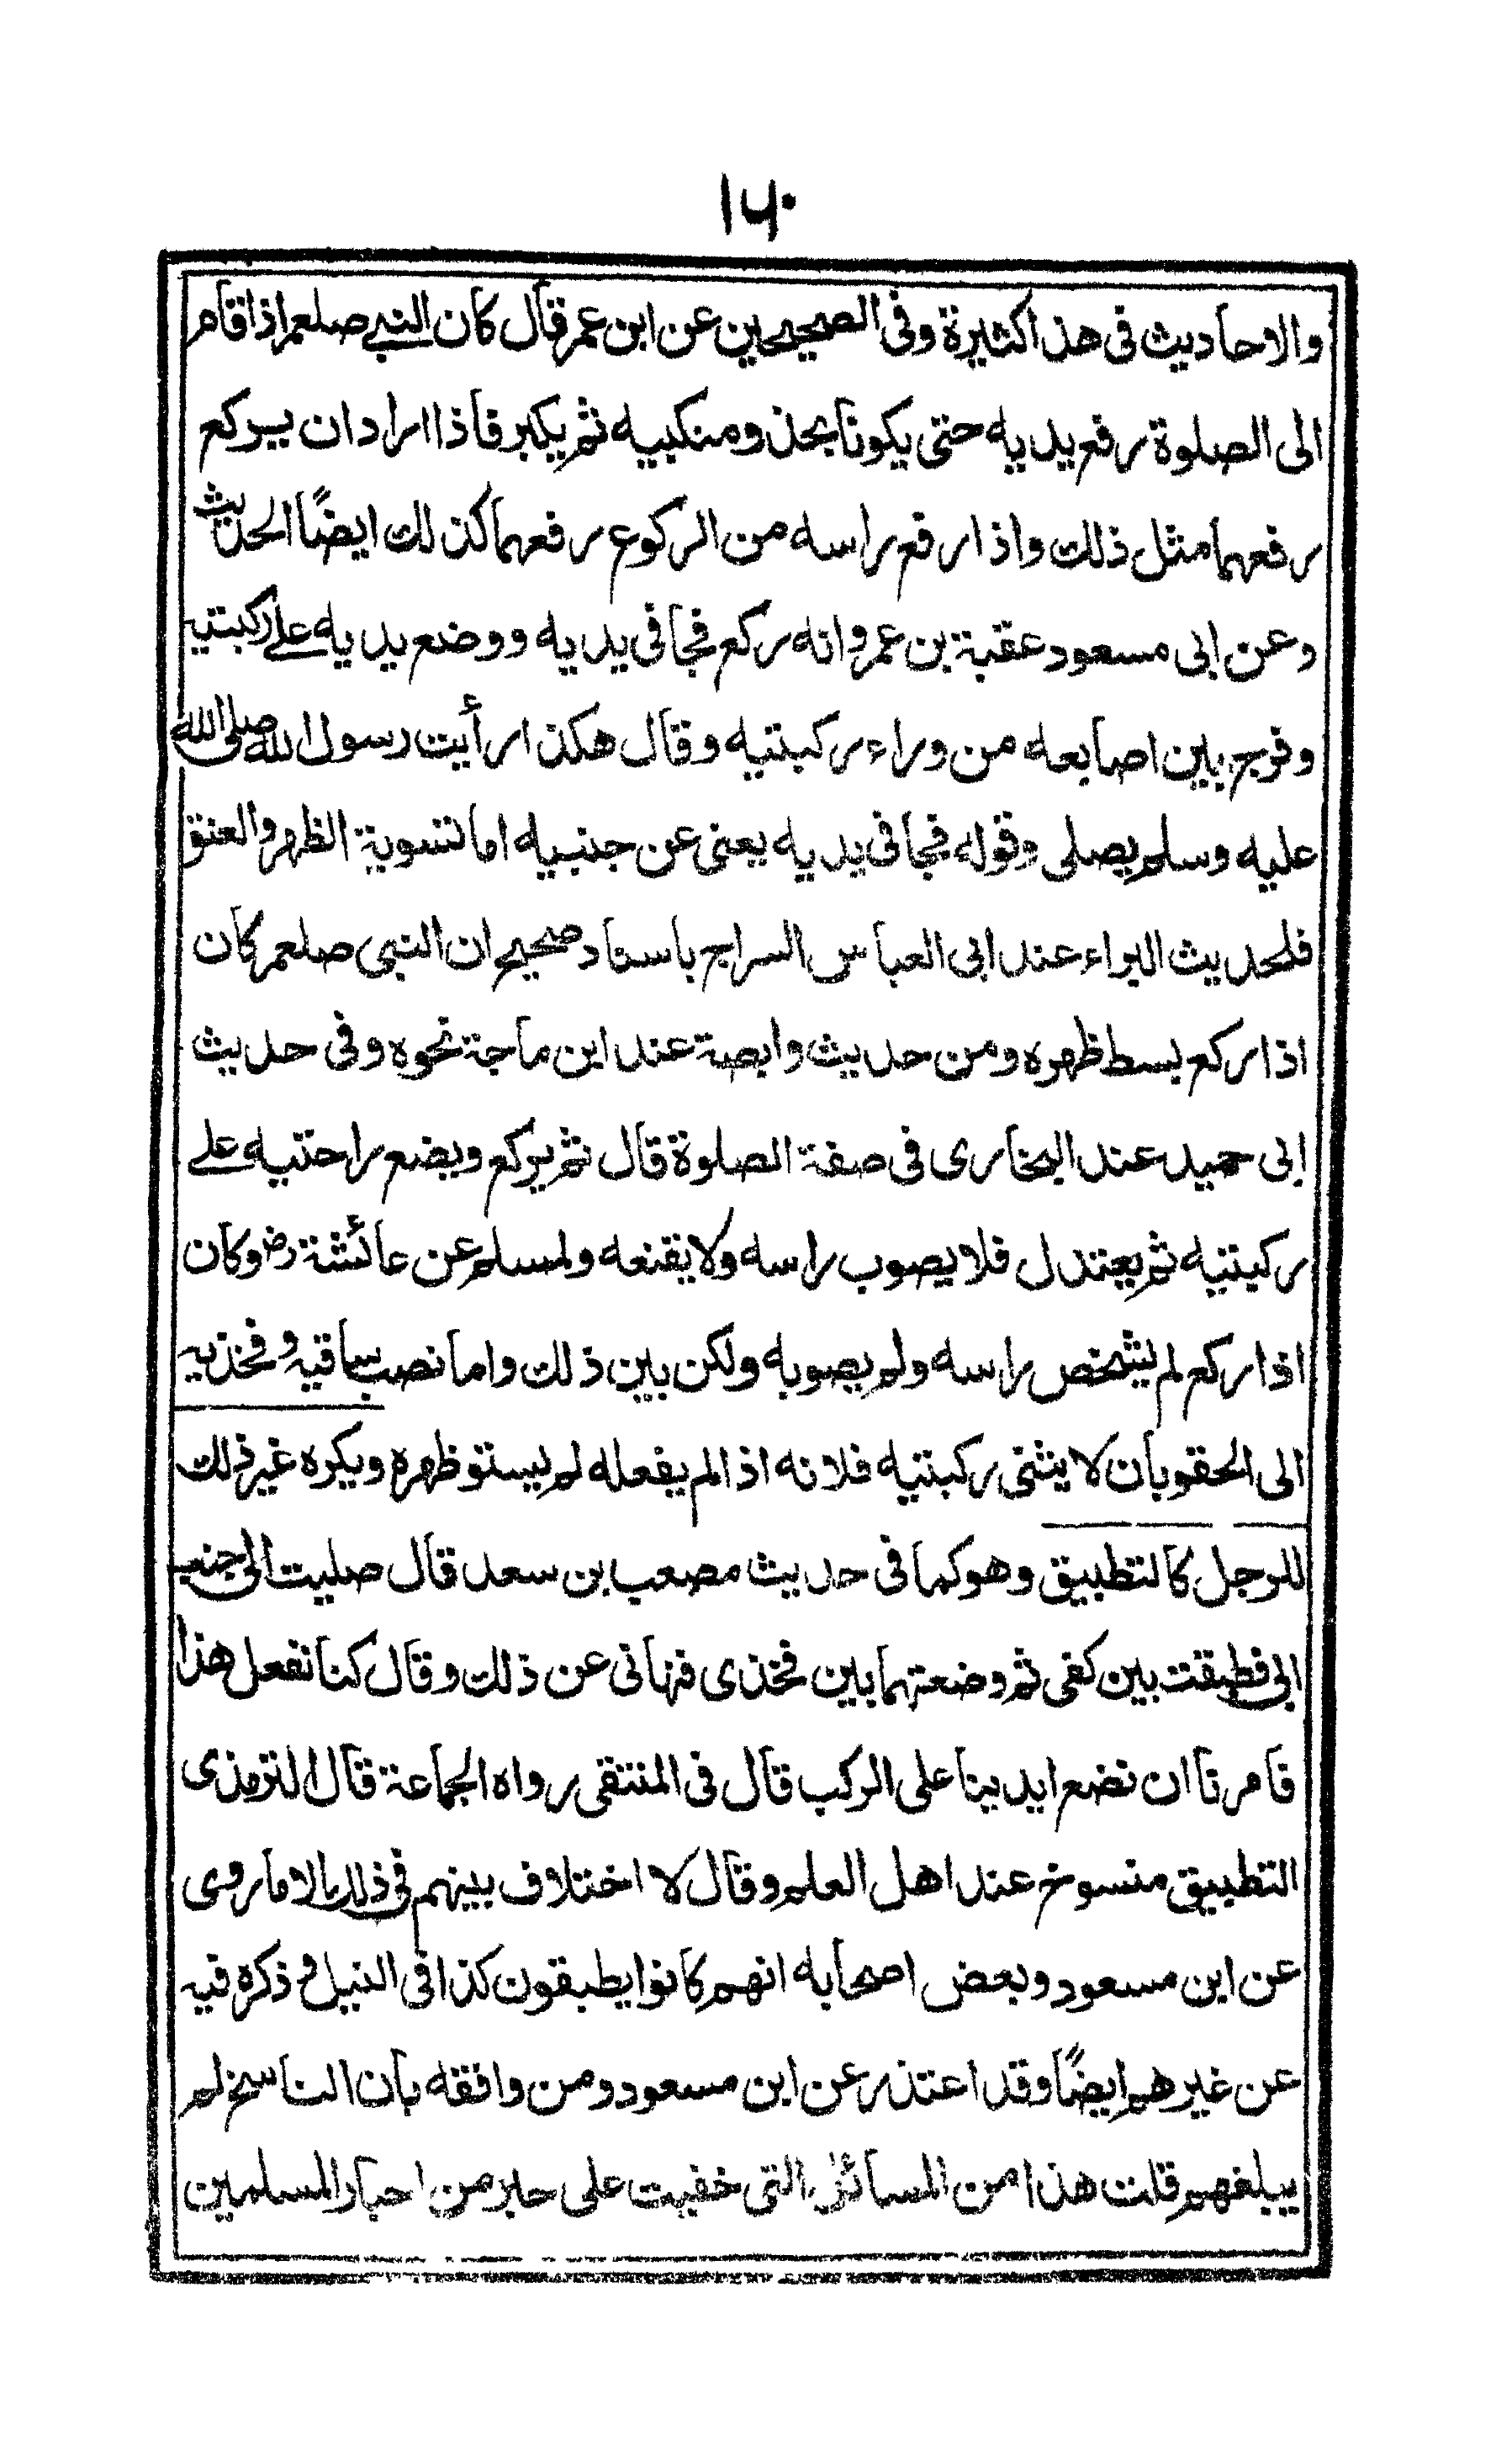 ١٤٠
والاحاديث فى هذا كثيرة وفى الصحيحين عن ابن عمر قال كان النبى صلعم اذا قام
الى الصلوة رفع يديه حتى يكونا بحذو منكبيه ثم يكبر فاذا اراد ان يركع
رفعهما مثل ذلك واذا رفع راسه من الركوع رفعهما كذلك ايضًا الحديث
وعن ابى مسعود عقبة بن عمرو انه ركع فجافى يديه ووضع يديه على ركبتيه
وفرج بين اصابعه من وراء ركبتيه وقال هكذا رأيت رسول الله صلى الله
عليه وسلم يصلى وقوله فجافى يديه يعنى عن جنبيه اما تسوية الظهر والعنق
فلحديث البراء عند ابى العباس السراج باسناد صحيح ان النبى صلعم كان
اذا ركع بسط ظهره ومن حديث وابصة عند ابن ماجة نحوه وفى حديث
ابى حميد عند البخارى فى صفة الصلوة قال ثم يركع ويضع راحتيه على
ركبتيه ثم يعتدل فلا يصوب راسه ولا يقنعه ولمسلم عن عائشة رض وكان
اذا ركع لم يشخص راسه ولم يصوبه ولكن بين ذلك واما نصب ساقيه وفخذيه
الى الحقو بان لا يثنى ركبتيه فلانه اذا لم يفعله لم يستو ظهره ويكره غير ذلك
للرجل كالتطبيق وهو كما فى حديث مصعب بن سعد قال صليت الى جنب
ابى فطبقت بين كفى ثم وضعتهما بين فخذى فنهانى عن ذلك وقال كنا نفعل هذا
فامرنا ان نضع ايدينا على الركب قال فى المنتقى رواه الجماعة قال الترمذى
التطبيق منسوخ عند اهل العلم وقال لا اختلاف بينهم فى ذلك الا ما روى
عن ابن مسعود وبعض اصحابه انهم كانوا يطبقون كذا فى النيل وذكره فيه
عن غيرهم ايضًا وقد اعتذر عن ابن مسعود ومن وافقه بان الناسخ لم
يبلغهم قلت هذا من المسائل التى خفيت على حبر من احبار المسلمين